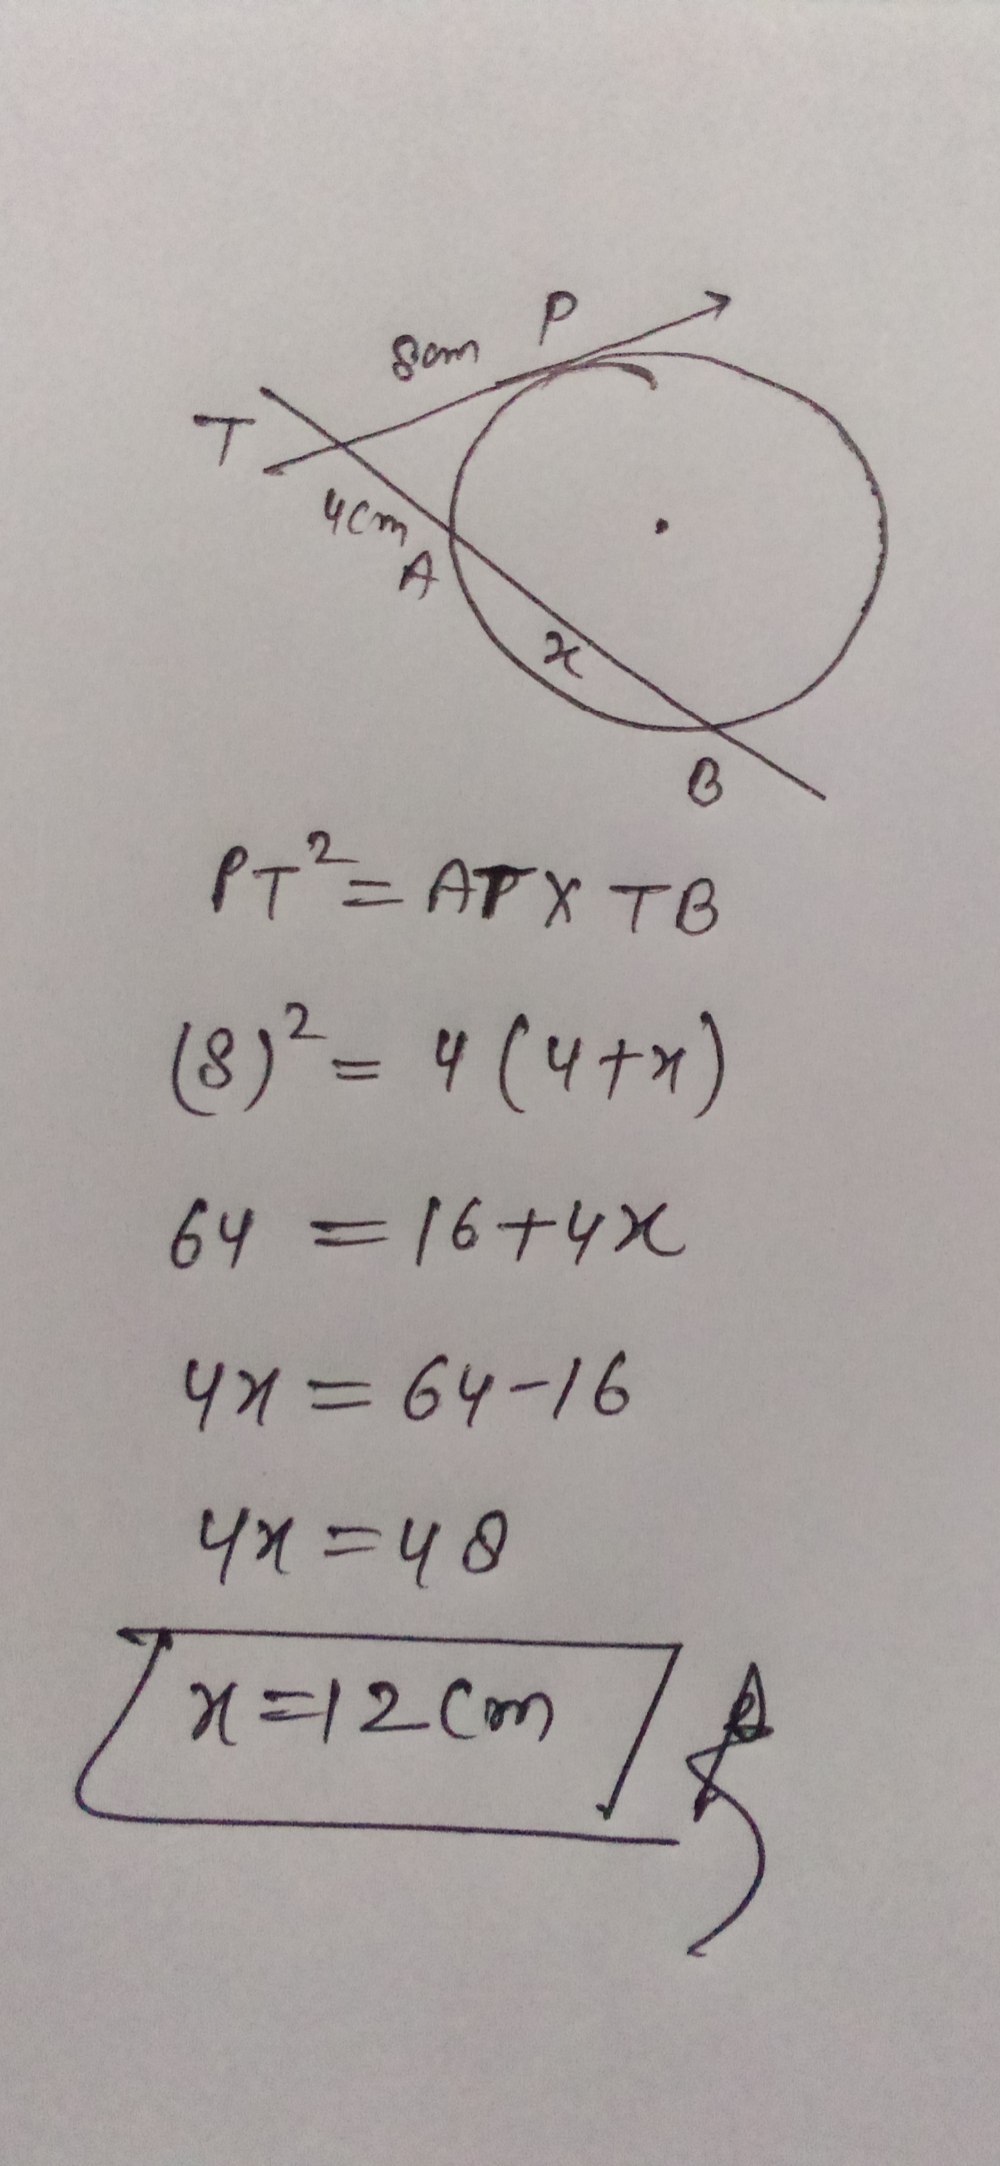 P
8cm
T
4cm
A
x
B
PT² = AT × TB
(8)² = 4 (4+x)
64 = 16+4x
4x = 64-16
4x = 48
x=12cm